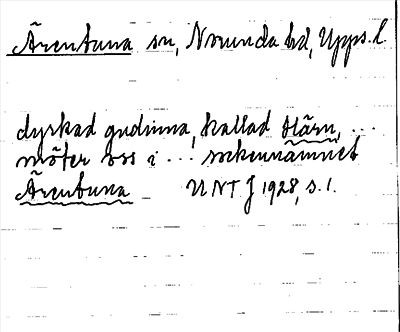 Ärentuna sn, Norunda hd, Upps. l.
dyrkad gudinna, kallad Härn, ...
möter oss i ... sockennamnet
Ärentuna UNT J 1928, s. 1.